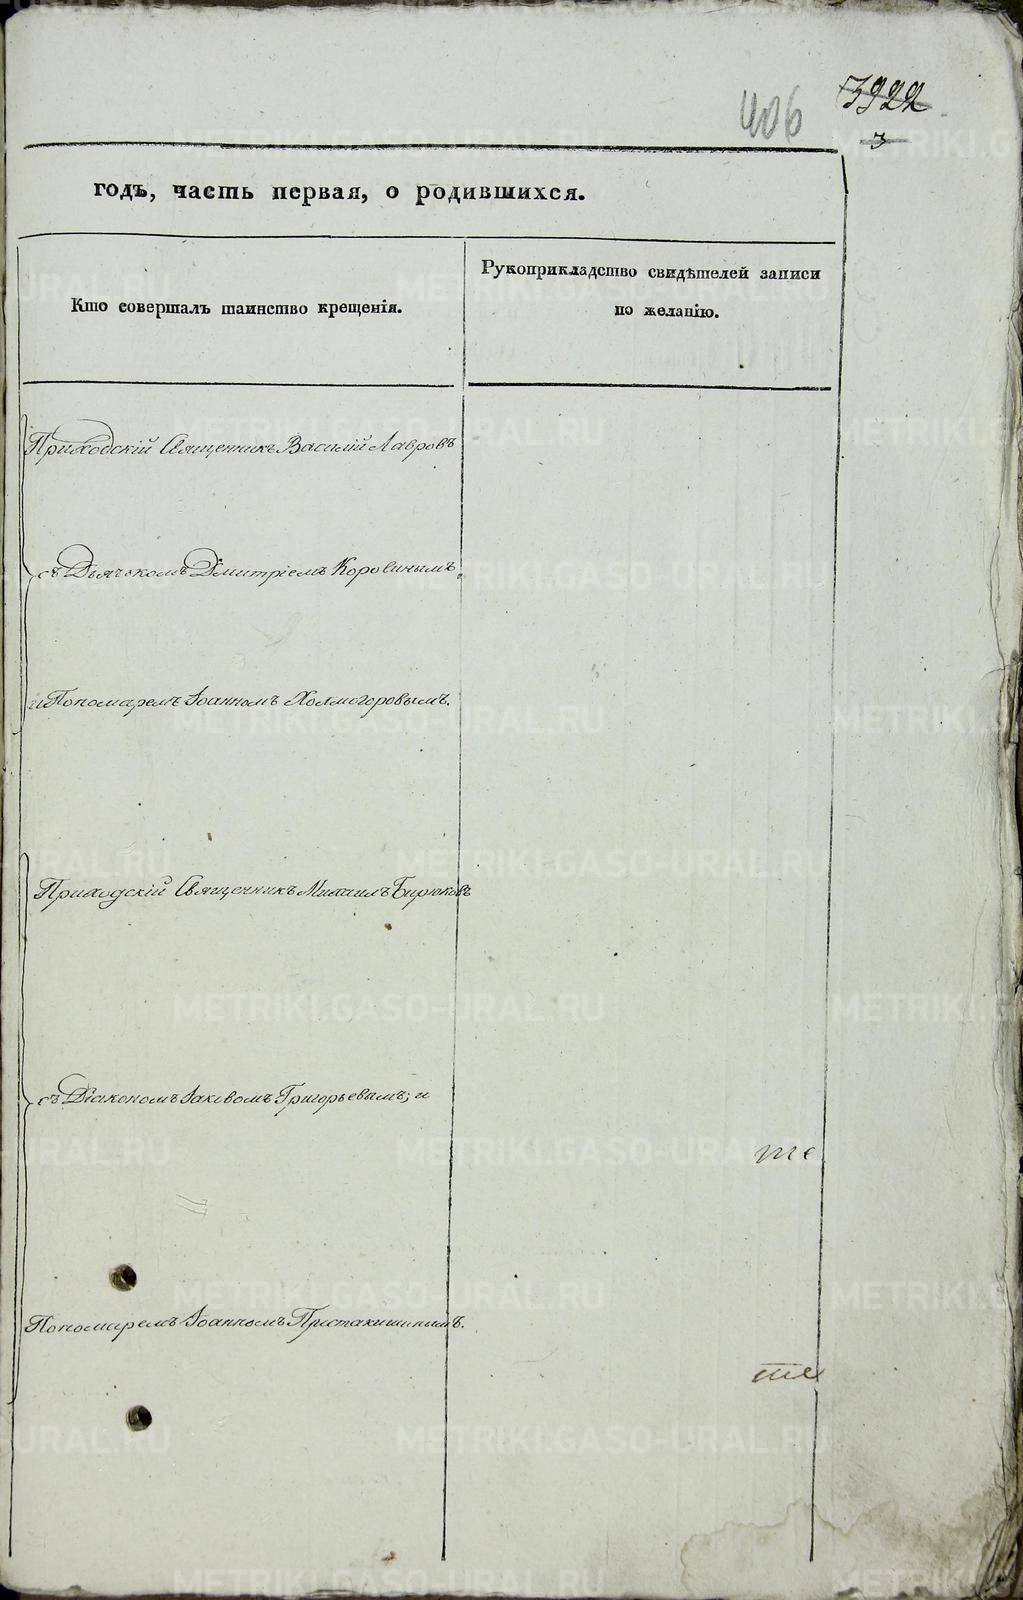 406
3922
3
годъ, часть первая, о родившихся.
Кто совершалъ таинство крещенія.
Рукоприкладство свидѣтелей записи
по желанію.
Приходскій Священникъ Василій Лавровъ
съ Дьячкомъ Дмитріемъ Коровинымъ
и Пономаремъ Іоанномъ Холмогоровымъ.
Приходскій Священникъ Михаилъ Бирюковъ
съ Діакономъ Іаковомъ Григорьевымъ; и
Пономаремъ Іоанномъ
METRIKI.GASO-URAL.RU